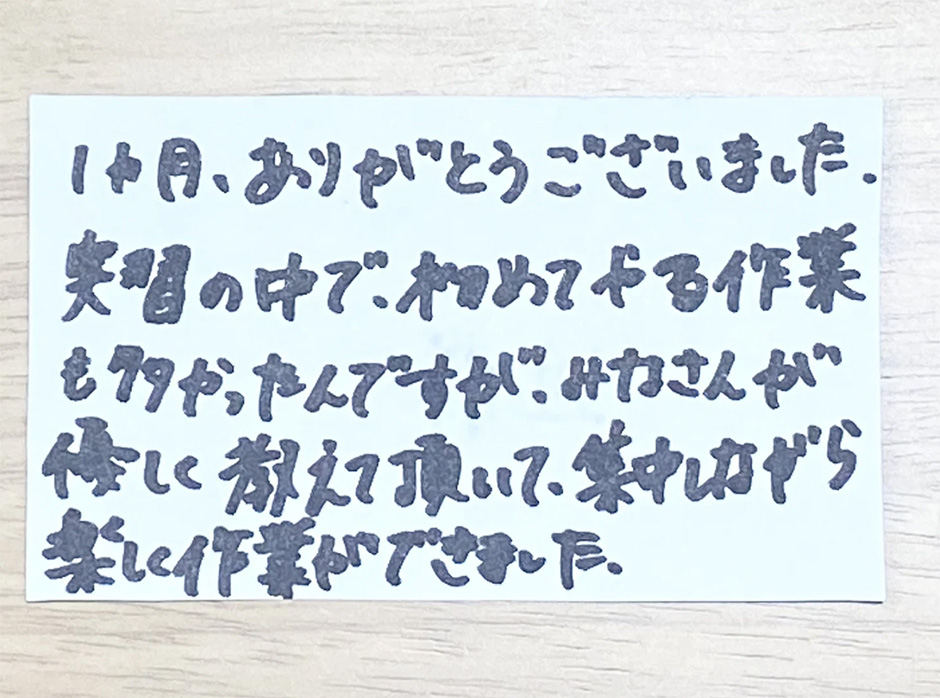 1ヶ月、ありがとうございました.
実習の中で、初めてやる作業
も多かったんですが、みなさんが
優しく教えて頂いて、集中しながら
楽しく作業ができました.